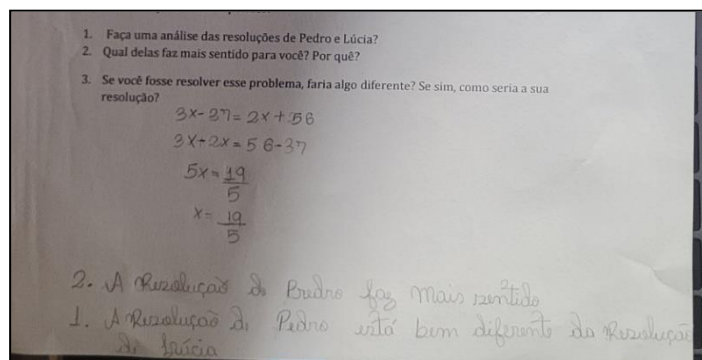 1. Faça uma análise das resoluções de Pedro e Lúcia?
2. Qual delas faz mais sentido para você? Por quê?
3. Se você fosse resolver esse problema, faria algo diferente? Se sim, como seria a sua
resolução?
3x-37=2x+56
3x+2x=56-37
5x=19/5
x=19/5
2. A Resolução do Pedro faz mais sentido
1. A Resolução di Pedro está bem diferente da Resolução
di Lúcia